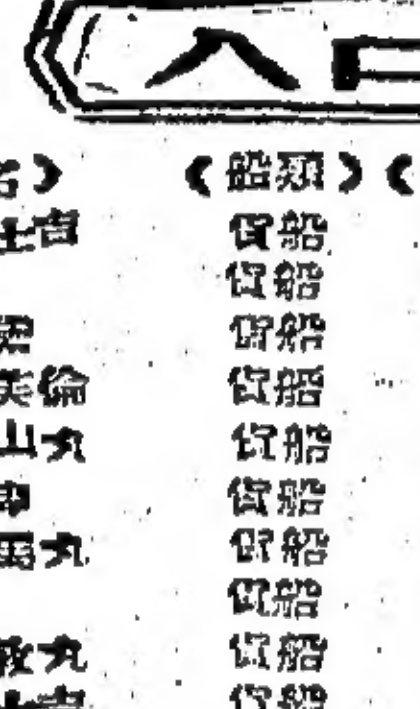 入口
名》 《船類》《
士吉 貨船
貨船
貨船
英倫 貨船
山丸 貨船
貨船
馬丸 貨船
貨船
敏丸 貨船
貨船